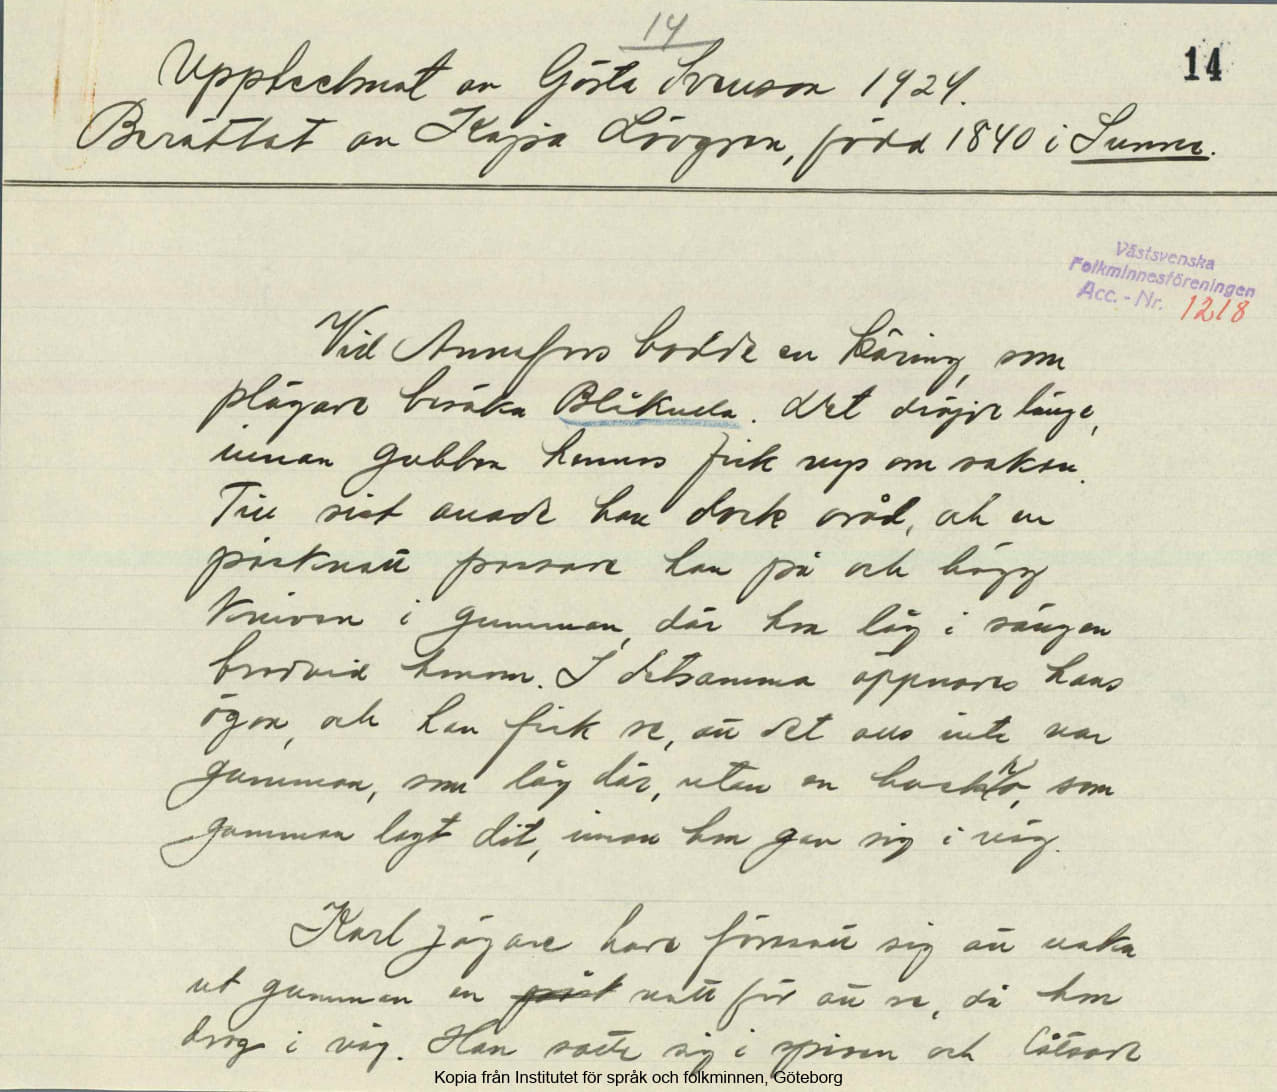 14
14
Upptecknat av Gösta Svenson 1924.
Berättat av Kajsa Lövgren, född 1840 i Sunne.
Västsvenska
Folkminnesföreningen
Acc. - Nr. 1218
Vid Annefors bodde en käring, som
plägade besöka Blåkulla. Det dröjde länge,
innan gubben hennes fick nys om saken.
Till sist anade han dock oråd, och en
påsknatt passade han på och högg
kniven i gumman, där hon låg i sängen
bredvid honom. I detsamma öppnades hans
ögon, och han fick se, att det alls inte var
gumman, som låg där, utan en backho, som
gumman lagt dit, innan hon gav sig i väg.
Karl Jägare hade föresatt sig att vaka
ut gumman en påsk natt för att se, då hon
drog i väg. Han satte sig i spisen och låtsade
Kopia från Institutet för språk och folkminnen, Göteborg